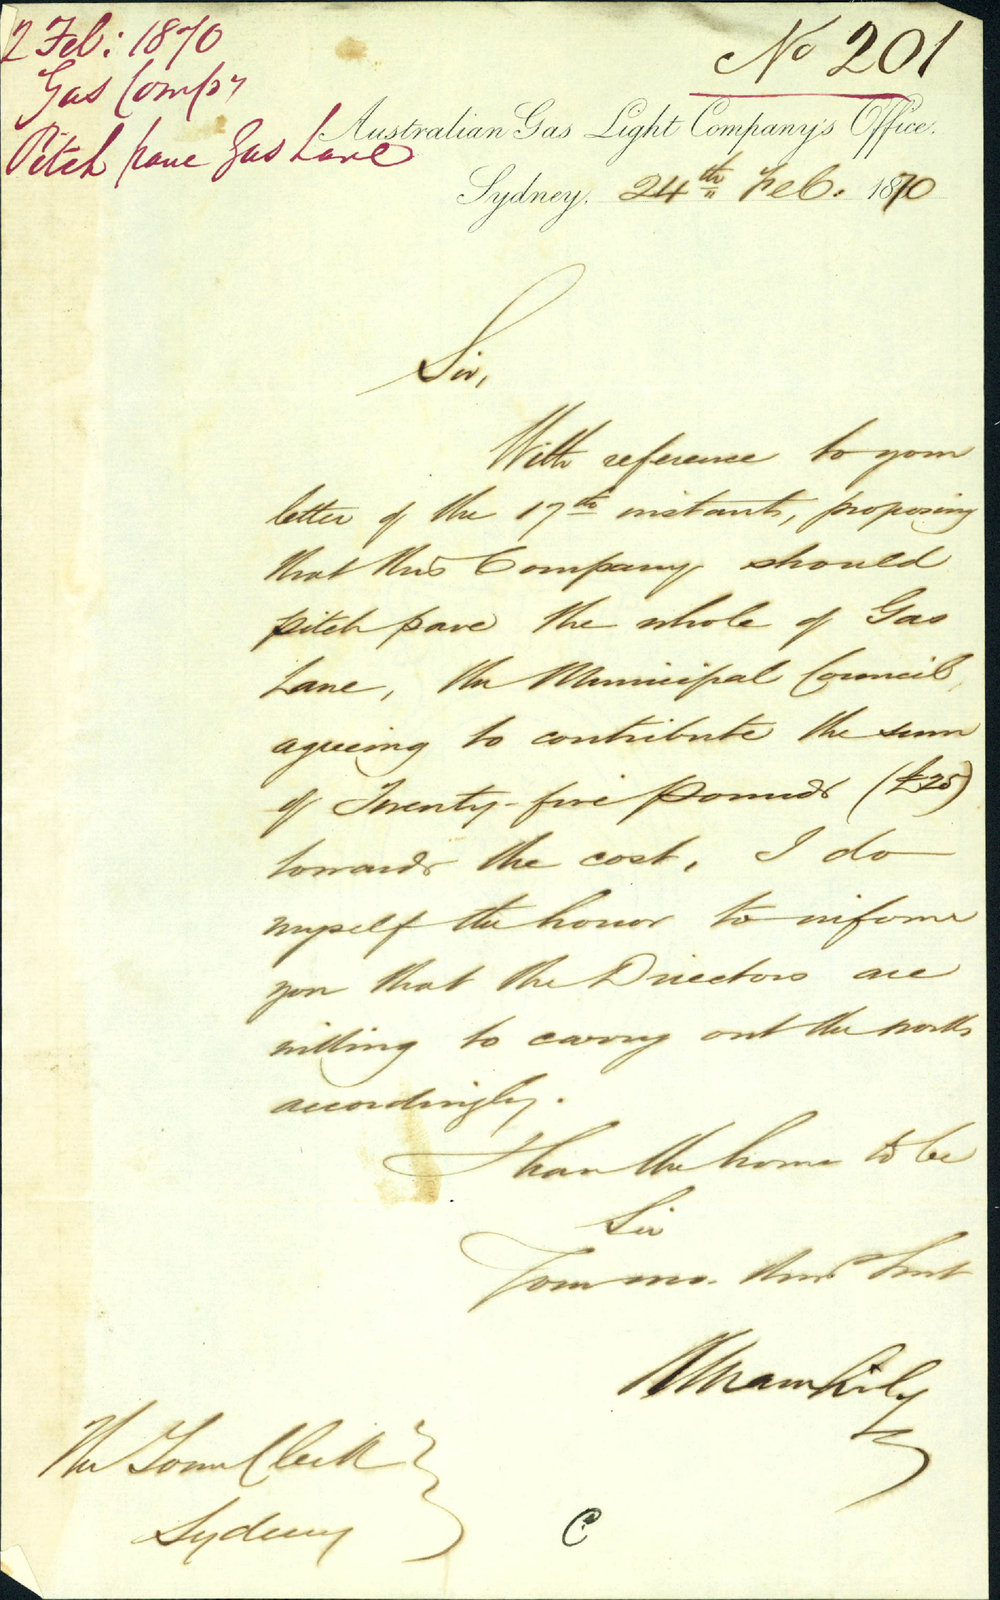 2 Feb: 1870
Gas Compy
Pitch pave Gas Lane
No 201
Australian Gas Light Company's Office.
Sydney, 24th Feb. 1870
Sir,
With reference to your
letter of the 17th instant, proposing
that this Company should
pitch pave the whole of Gas
Lane, the Municipal Council,
agreeing to contribute the sum
of Twenty-five pounds (£25)
towards the cost, I do
myself the honor to inform
you that the Directors are
willing to carry out the work
accordingly.
I have the honor to be
Sir
Your mo.
The Town Clerk
Sydney
C